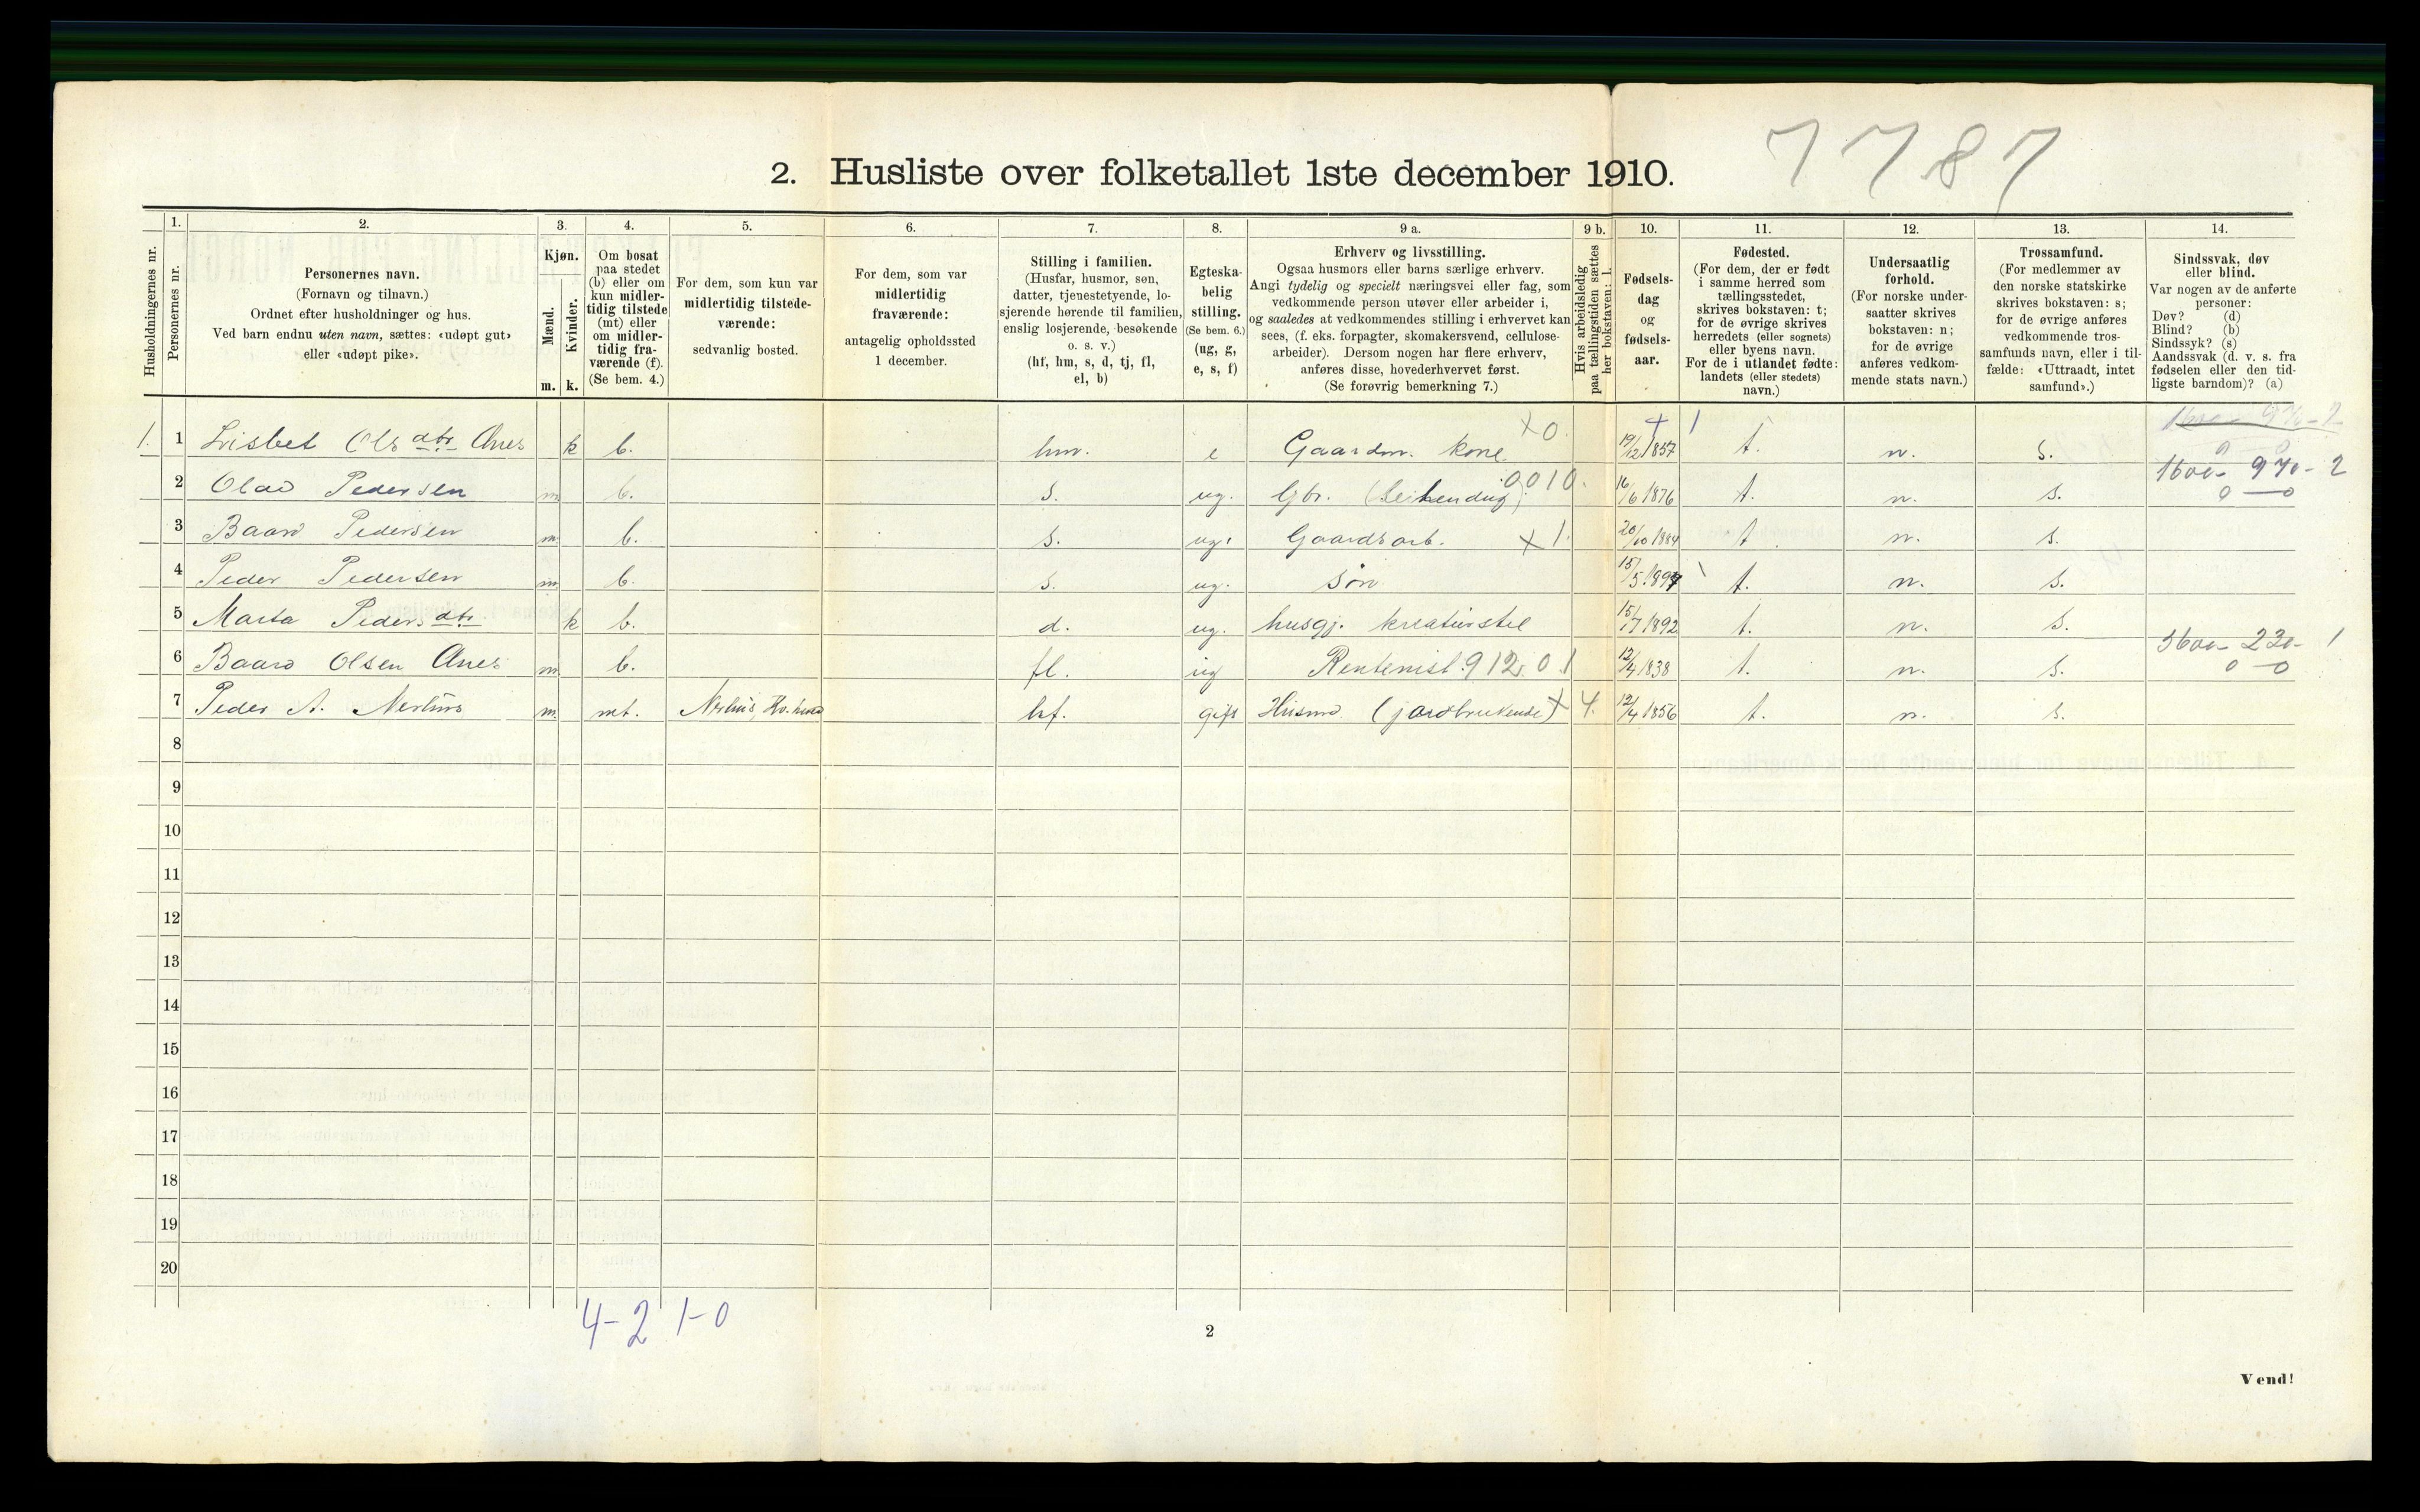 7787
2. Husliste over folketallet 1ste december 1910.
Husholdningernes nr.
1.
Personernes nr.
2.
Personernes navn.
(Fornavn og tilnavn.)
Ordnet efter husholdninger og hus.
Ved barn endnu uten navn, sættes: «udøpt gut»
eller «udøpt pike».
3.
Kjøn.
Mænd.
Kvinder.
m. k.
4.
Om bosat
paa stedet
(b) eller om
kun midler-
tidig tilstede
(mt) eller
om midler-
tidig fra-
værende (f).
(Se bem. 4.)
5.
For dem, som kun var
midlertidig tilstede-
værende:
sedvanlig bosted.
6.
For dem, som var
midlertidig
fraværende:
antagelig opholdssted
1 december.
7.
Stilling i familien.
(Husfar, husmor, søn,
datter, tjenestetyende, lo-
sjerende hørende til familien,
enslig losjerende, besøkende
o. s. v.)
(hf, hm, s, d, tj, fl,
el, b)
8.
Egteska-
belig
stilling.
(Se bem. 6.)
(ug, g,
e, s, f)
9 a.
Erhverv og livsstilling.
Ogsaa husmors eller barns særlige erhverv.
Angi tydelig og specielt næringsvei eller fag, som
vedkommende person utøver eller arbeider i,
og saaledes at vedkommendes stilling i erhvervet kan
sees, (f. eks. forpagter, skomakersvend, cellulose-
arbeider). Dersom nogen har flere erhverv,
anføres disse, hovederhvervet først.
(Se forøvrig bemerkning 7.)
9 b.
Hvis arbeidsledig
paa tællingstiden sættes
her bokstaven: l.
10.
Fødsels-
dag
og
fødsels-
aar.
11.
Fødested.
(For dem, der er født
i samme herred som
tællingsstedet,
skrives bokstaven: t;
for de øvrige skrives
herredets (eller sognets)
eller byens navn.
For de i utlandet fødte:
landets (eller stedets)
navn.)
12.
Undersaatlig
forhold.
(For norske under-
saatter skrives
bokstaven: n;
for de øvrige
anføres vedkom-
mende stats navn.)
13.
Trossamfund.
(For medlemmer av
den norske statskirke
skrives bokstaven: s;
for de øvrige anføres
vedkommende tros-
samfunds navn, eller i til-
fælde: «Uttraadt, intet
samfund».)
14.
Sindssvak, døv
eller blind.
Var nogen av de anførte
personer:
Døv? (d)
Blind? (b)
Sindssyk? (s)
Aandssvak (d. v. s. fra
fødselen eller den tid-
ligste barndom)? (a)
1. 1 k b. hm. e Gaardm. kone. X 0. 19/12 1857 t. n. s.
2 Pedersen m b. s. ug. Gbr. 0010. 16/6 1876 t. n. s. 1600 - 970 - 2
0 — 0
3 Baard Pedersen m. b. s. ug. Gaardsarb. X 1. 20/10 1884 t. n. s.
4 Peder Pedersen m b. s. ug. søn t. n. s.
5 Marta Pedersdtr k b. d. ug. husgj. kreaturstel 15/7 1892 t. n. s.
6 Baard Olsen m b. fl. ug Rentenist. 912. 0.1 12/4 1838 t. n. s. 3600 - 230 - 1
0 — 0
7 Peder A. m. mt. hf. gift Husmd. (jordbrukende) X 4. 12/4 1856 t. n. s.
8
9
10
11
12
13
14
15
16
17
18
19
20
4-2 1-0
2
Vend!